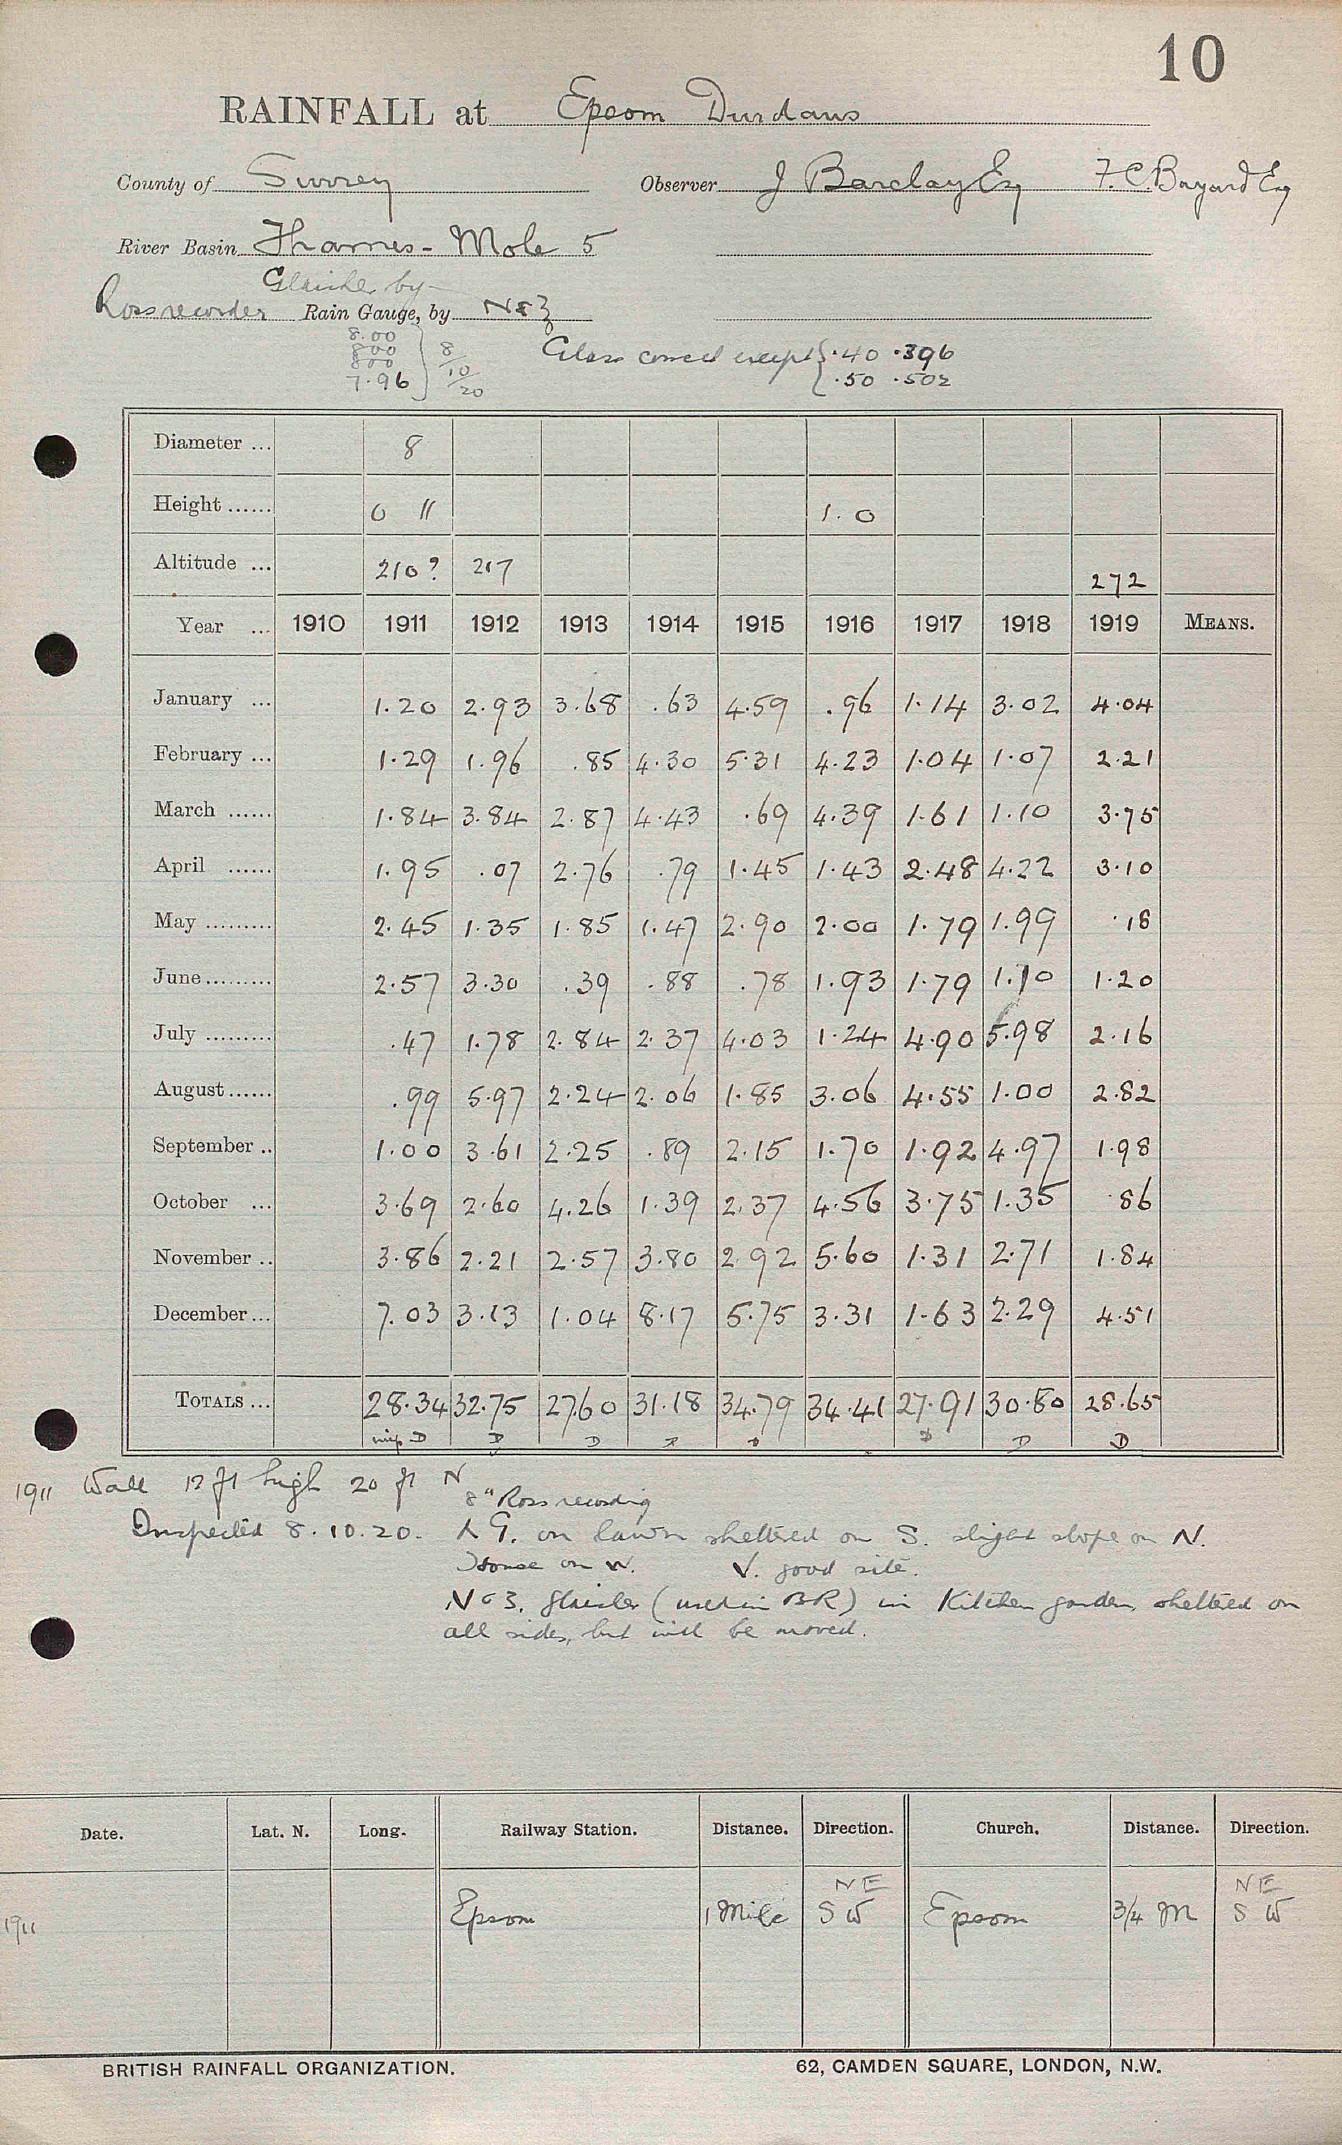 10
RAINFALL at Epsom Durdans
County of Surrey Observer J Barclay Esq F. C. Bayard Esq
River Basin Thames - Mole 5
Glaisher by -
Ross recorder Rain Gauge, by N & Z
8.00
800
800
7.96
8/10/20
Glass correct except { .40 .396
.50 .502
Diameter ... 8
Height ...... 0 11 1.0
Altitude ... 210? 217 272
Year ... 1910 1911 1912 1913 1914 1915 1916 1917 1918 1919 MEANS.
January ... 1.20 2.93 3.68 .63 4.59 .96 1.14 3.02 4.04
February ... 1.29 1.96 .85 4.30 5.31 4.23 1.04 1.07 2.21
March ...... 1.84 3.84 2.87 4.43 .69 4.39 1.61 1.10 3.75
April ...... 1.95 .07 2.76 .79 1.45 1.43 2.48 4.22 3.10
May ......... 2.45 1.35 1.85 1.47 2.90 2.00 1.79 1.99 .18
June ......... 2.57 3.30 .39 .88 .78 1.93 1.79 1.10 1.20
July ......... .47 1.78 2.84 2.37 4.03 1.24 4.90 5.98 2.16
August ...... .99 5.97 2.24 2.06 1.85 3.06 4.55 1.00 2.82
September .. 1.00 3.61 2.25 .89 2.15 1.70 1.92 4.97 1.98
October ... 3.69 2.60 4.26 1.39 2.37 4.56 3.75 1.35 .86
November .. 3.86 2.21 2.57 3.80 2.92 5.60 1.31 2.71 1.84
December ... 7.03 3.13 1.04 8.17 5.75 3.31 1.63 2.29 4.51
TOTALS ... 28.34 32.75 27.60 31.18 34.79 34.41 27.91 30.80 28.65
D D D D D D D D
1911 Wall 12 ft high 20 ft N
8" Ross recording
Inspected 8.10.20. R G. on lawn sheltered on S. slight slope on N.
House on W. V. good site.
N & Z. glaisher (used in BR) in Kitchen garden, sheltered on
all sides, but will be moved.
Date. Lat. N. Long. Railway Station. Distance. Direction. Church. Distance. Direction.
NE NE
1911 Epsom 1 Mile SW Epsom 3/4 M SW
BRITISH RAINFALL ORGANIZATION. 62, CAMDEN SQUARE, LONDON, N.W.